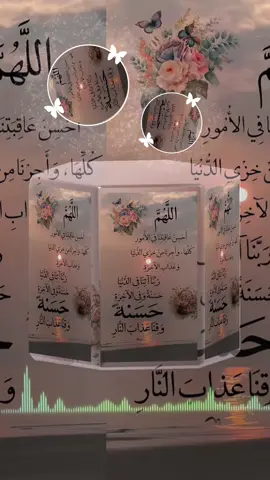 اللَّهُمَّ
أَحْسِنْ عَاقِبَتَنَا فِي الْأُمُورِ
كُلِّهَا، وَأَجِرْنَا مِنْ خِزْيِ الدُّنْيَا
وَعَذَابِ الْآخِرَةِ
رَبَّنَا آتِنَا فِي الدُّنْيَا
حَسَنَةً وَفِي الْآخِرَةِ
حَسَنَةً
وَقِنَا عَذَابَ النَّارِ